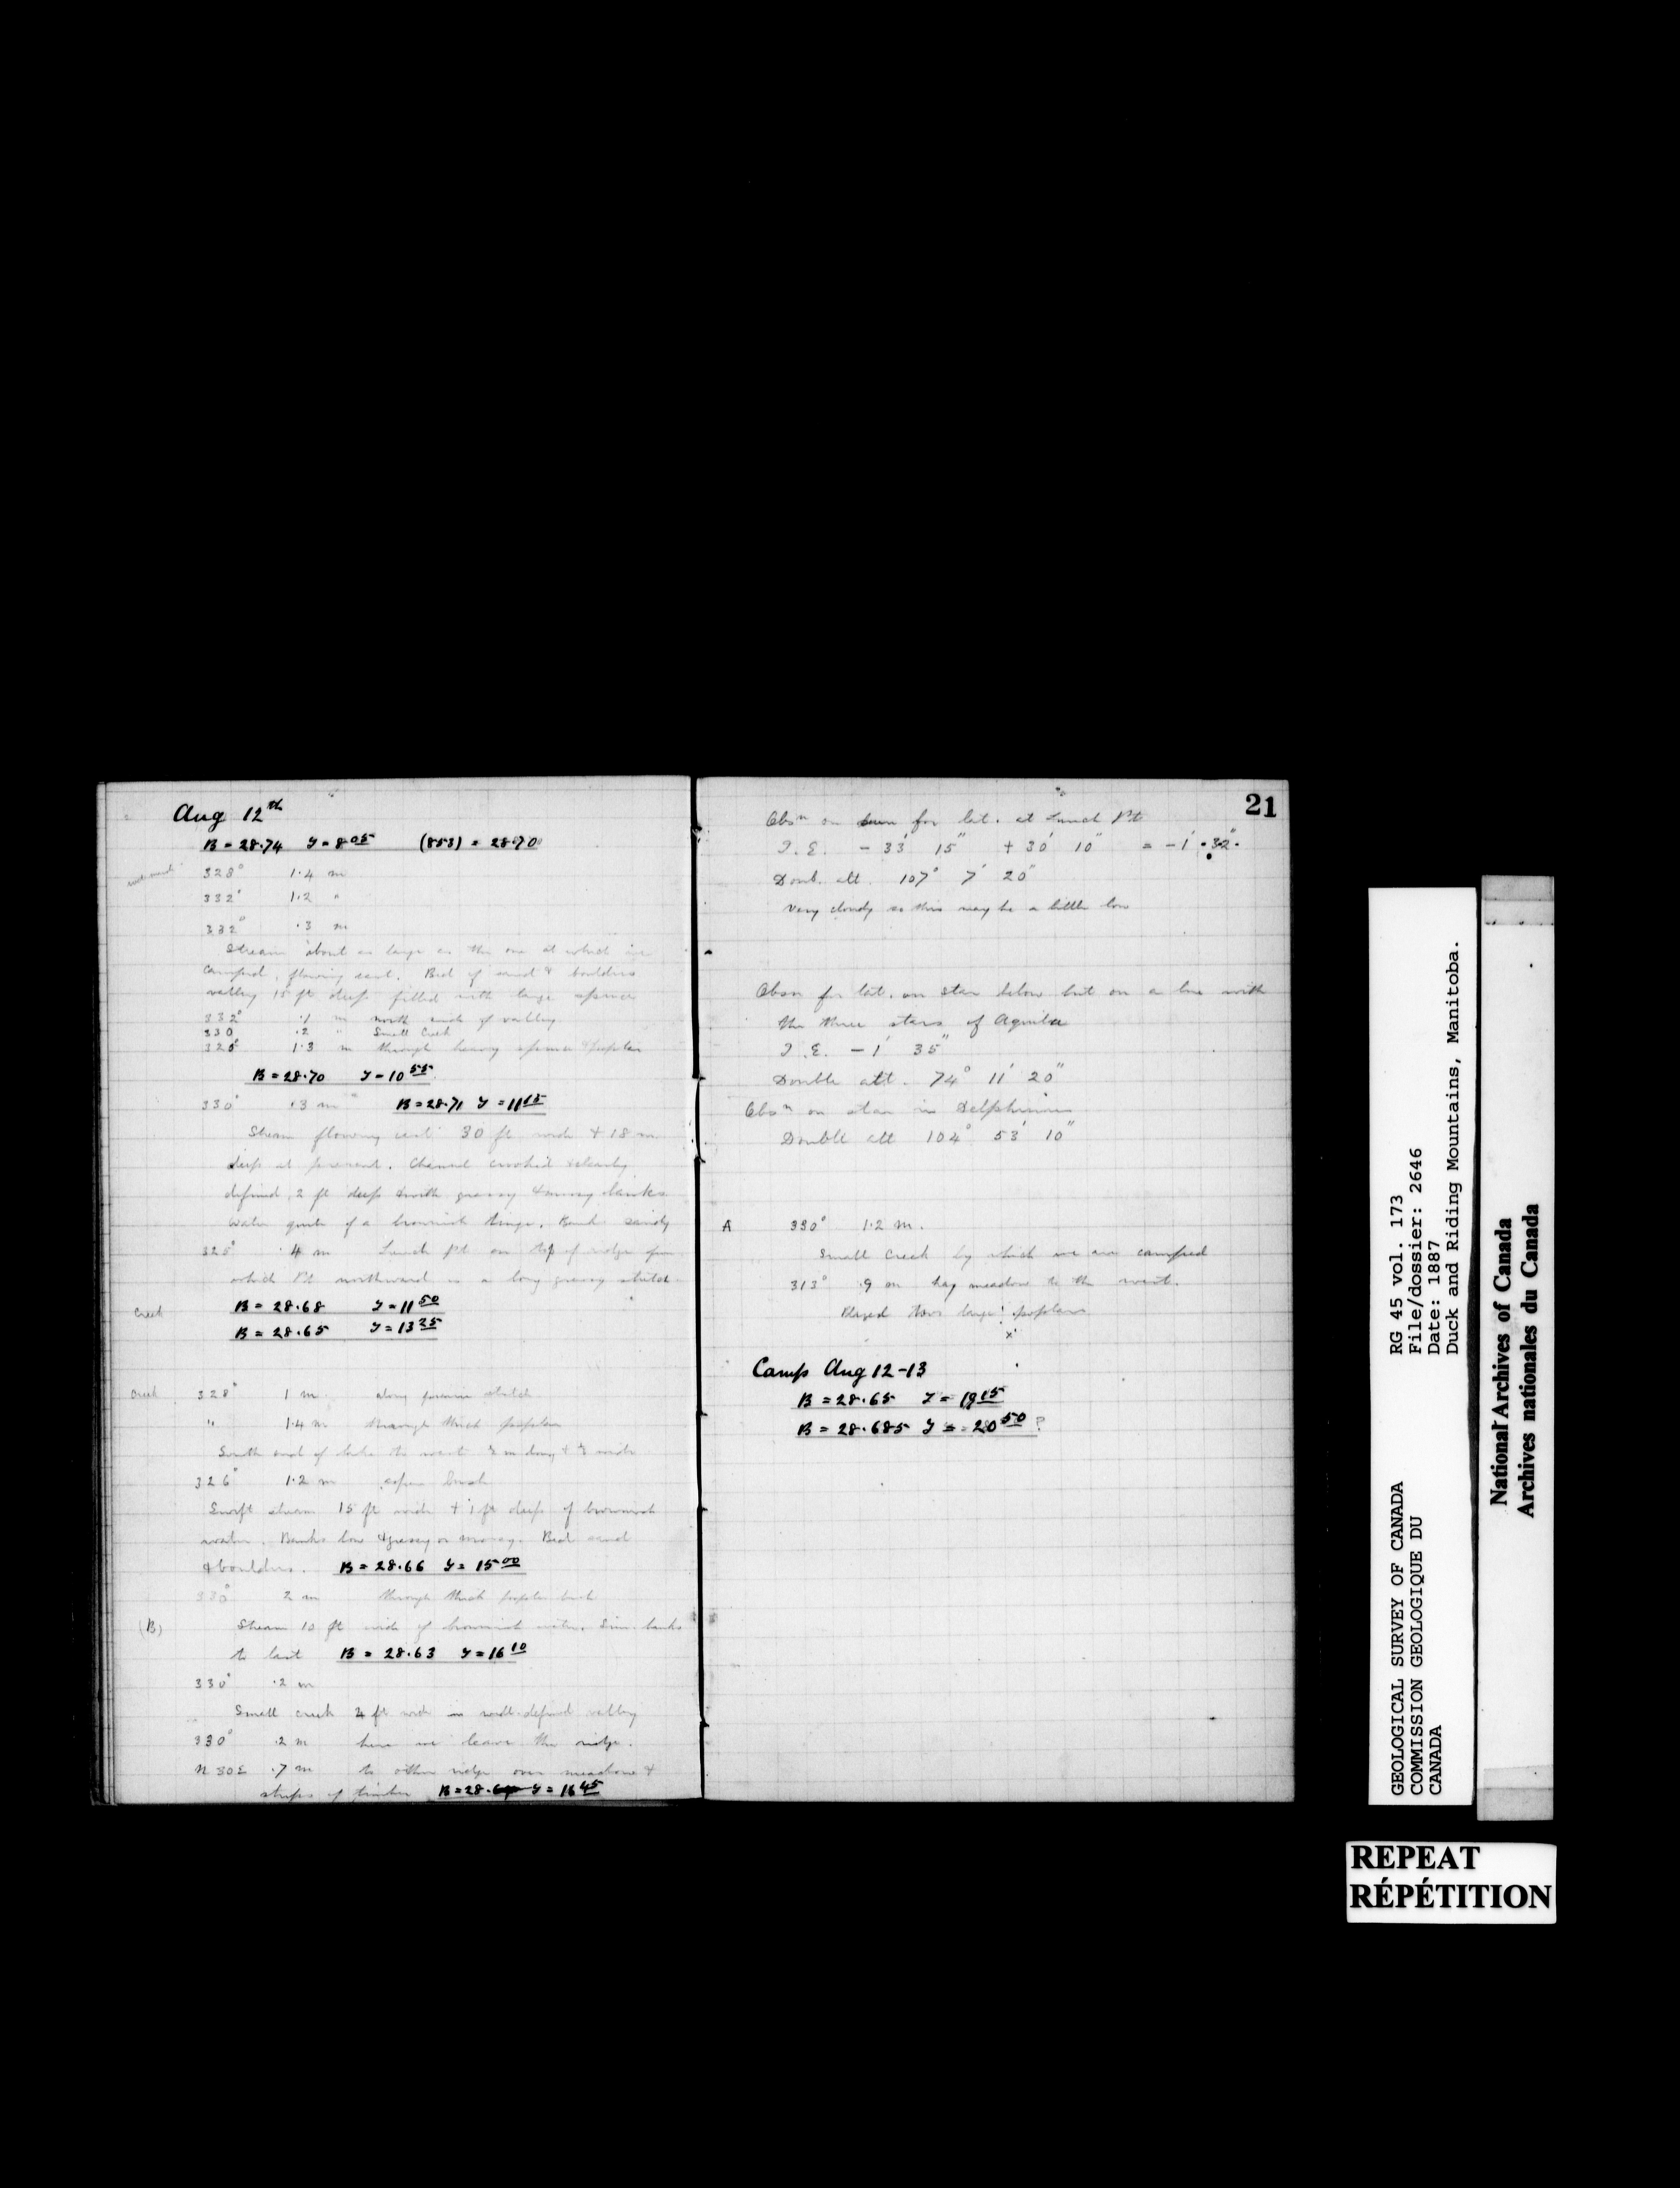 Aug 12th
B = 28.74 T = 8 05 (853) = 28.70
328° 1.4 m
332° 1.2 "
332° .3 m
Stream about as large as the one at which we
camped, flowing east. Bed of sand & boulders
valley 15 ft deep filled with large spruce
332° .1 m north side of valley
330 .2 " Small Creek
325° 1.3 m through heavy spruce & poplar
B = 28.70 T = 10 55
330° 1.3 m B = 28.71 T = 11 15
Stream flowing east 30 ft wide & 18 in
deep at present. Channel crooked & clearly
defined, 2 ft deep & with grassy & mossy banks.
Water quite of a brownish tinge. Banks sandy
325° .4 m Lunch pt on top of ridge from
which Pt northward is a long grassy stretch.
B = 28.68 T = 11 50
Creek
B = 28.65 T = 13 25
Creek 328° 1 m along prairie stretch
" 1.4 m through thick poplar
South end of lake to west
326° 1.2 m aspen bush
Swift stream 15 ft wide & 1 ft deep of brownish
water. Banks low & grassy or mossy. Bed sand
& boulders. B = 28.66 T = 15 00
330° 2 m through thick poplar bush
(B) Stream 10 ft wide of brownish water. Sim. banks
to last B = 28.63 T = 16 10
330° .2 m
Small creek 4 ft wide in well-defined valley
330° .2 m here we leave the ridge.
N 30 E .7 m to other ridge over meadows &
strips of timber B = 28. T = 16 45
21
Obsn on sun for lat. at Lunch Pt
I.E. - 33' 15" + 30' 10" = - 1' 32"
Doub. alt. 107° 7' 20"
Very cloudy so this may be a little low
Obsn for lat. on star below but on a line with
the three stars of Aquila
I.E. - 1' 35"
Double alt. 74° 11' 20"
Obsn on star in Delphinus
Double alt 104° 53' 10"
A 330° 1.2 m.
Small Creek by which we are camped
313° .9 m hay meadow to the west.
Blazed two large poplars
x
Camp Aug 12-13
B = 28.65 T = 19 15
B = 28.685 T = 20 50 ?
GEOLOGICAL SURVEY OF CANADA
COMMISSION GEOLOGIQUE DU
CANADA
RG 45 vol. 173
File/dossier: 2646
Date: 1887
Duck and Riding Mountains, Manitoba.
National Archives of Canada
Archives nationales du Canada
REPEAT
RÉPÉTITION